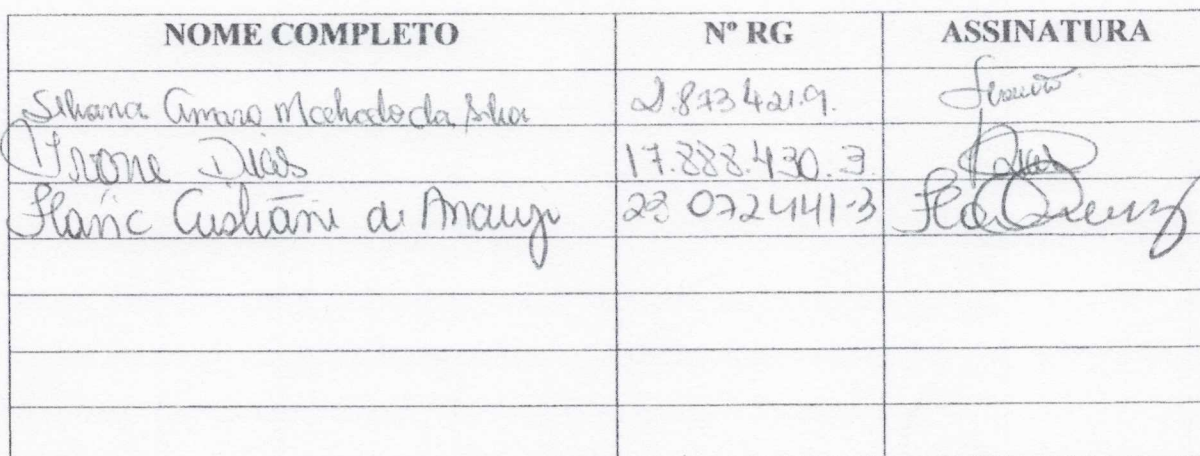 NOME COMPLETO Nº RG ASSINATURA
Silvana Amaro Machado da Silva 2.873421.9.
Ivone Dias 17.888.430.3 Dias
Cristiane de Araujo 29 0724413